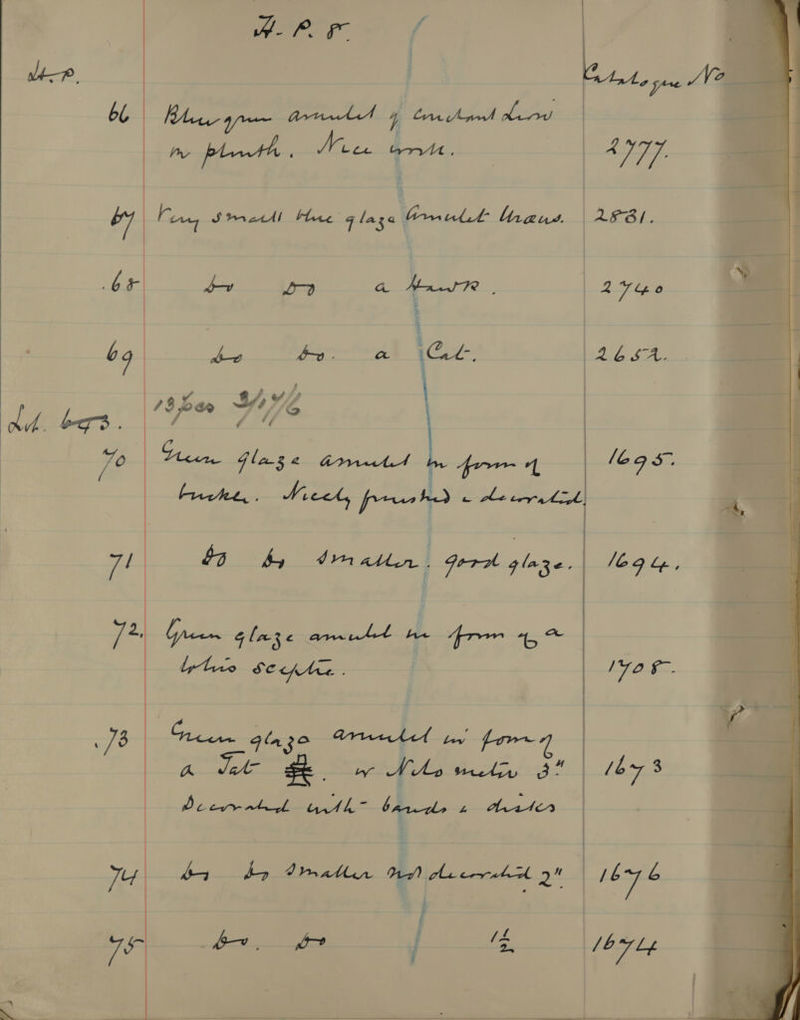 H. P. F.
H.P. Catalogue No
66 Blue green amulet of couchant Lion
on plinth. Nice work. 2777.
67 Very small blue glaze Amulet Uraeus. 2831.
68 do do a Hawk. 2740
69 do do. a Cat. 265A.
70 Green glaze amulet in form of 1695.
Nicely finished & decorated
71 do do smaller. Good glaze. 1694.
72. Green glaze amulet in form of a
lotus sceptre. 1708.
73 Green glaze amulet in form of
a Tat 3" 1673
Decorated with bands &
74 do do smaller not decorated 2" 1676
75 do. do 1674